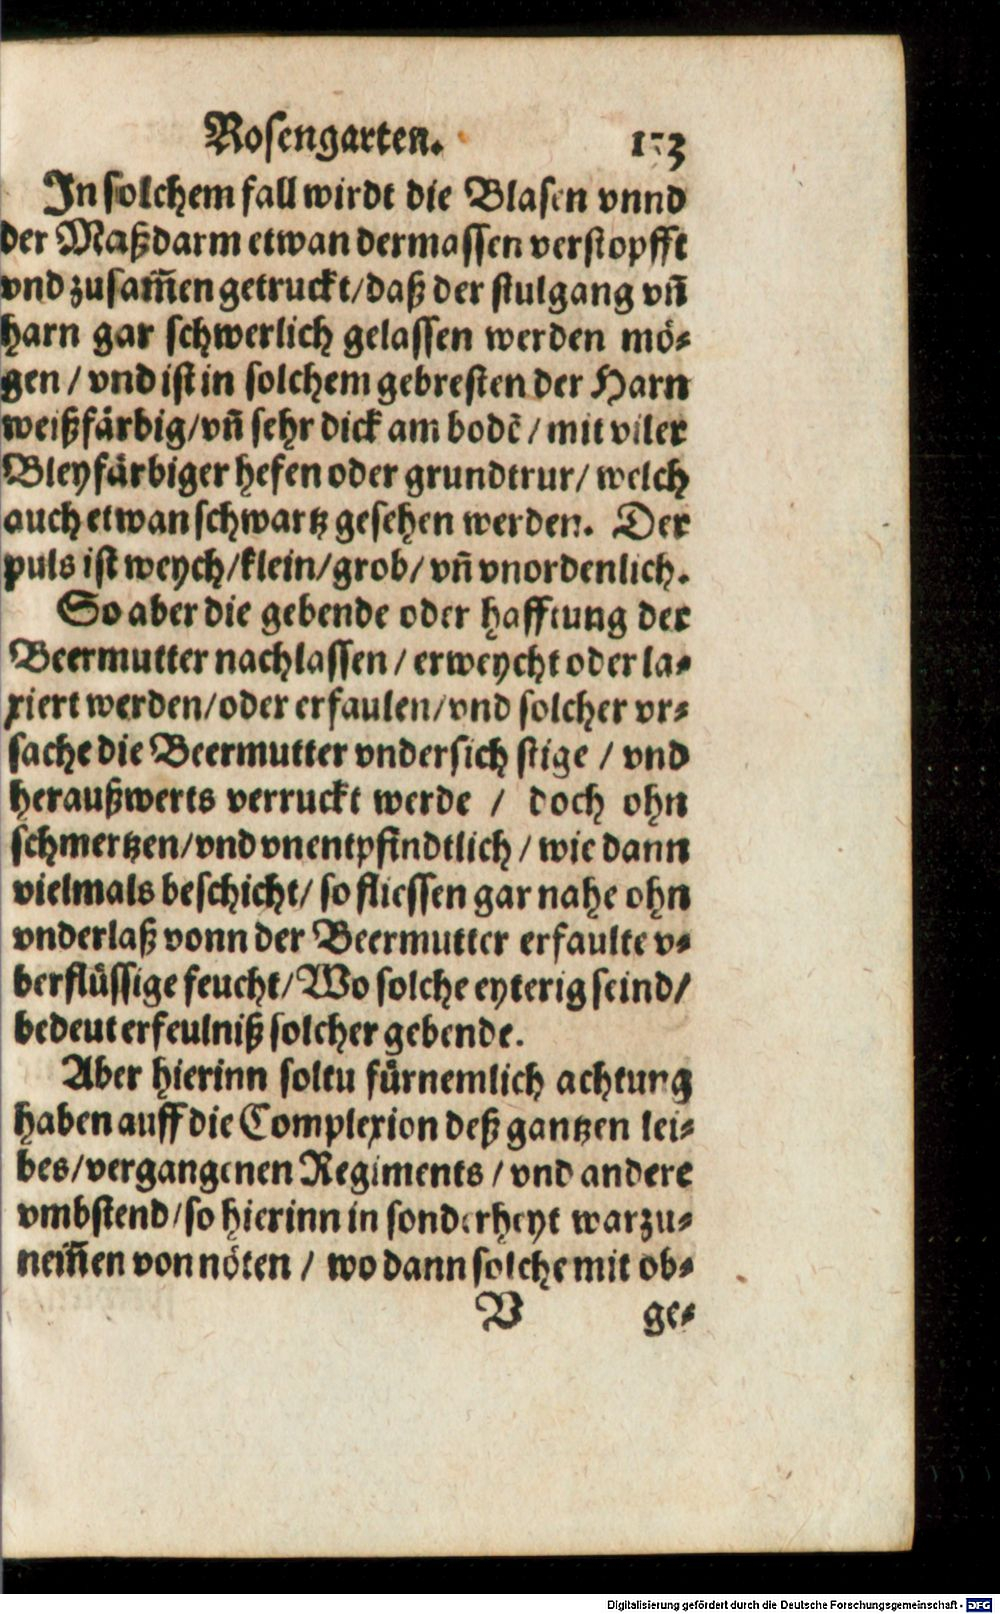 Rosengarten. 153
In solchem fall wirdt die Blasen vnnd
der Maßdarm etwan dermassen verstopfft
vnd zusam̃en getruckt/daß der stulgang vñ
harn gar schwerlich gelassen werden mö-
gen / vnd ist in solchem gebresten der Harn
weißfärbig/vñ sehr dick am bodẽ / mit viler
Bleyfärbiger hefen oder grundtrur/ welch
auch etwan schwartz gesehen werden. Der
puls ist weych/klein/grob/ vñ vnordenlich.
So aber die gebende oder hafftung der
Beermutter nachlassen / erweycht oder la-
xiert werden/oder erfaulen/vnd solcher vr-
sache die Beermutter vndersich stige / vnd
heraußwerts verruckt werde / doch ohn
schmertzen/vnd vnentpfindtlich / wie dann
vielmals beschicht/ so fliessen gar nahe ohn
vnderlaß vonn der Beermutter erfaulte v-
berflüssige feucht/ Wo solche eyterig seind/
bedeut erfeulniß solcher gebende.
Aber hierinn soltu fürnemlich achtung
haben auff die Complexion deß gantzen lei-
bes/vergangenen Regiments / vnd andere
vmbstend/so hierinn in sonderheyt warzu-
nem̃en von nöten / wo dann solche mit ob-
V ge-
Digitalisierung gefördert durch die Deutsche Forschungsgemeinschaft - DFG